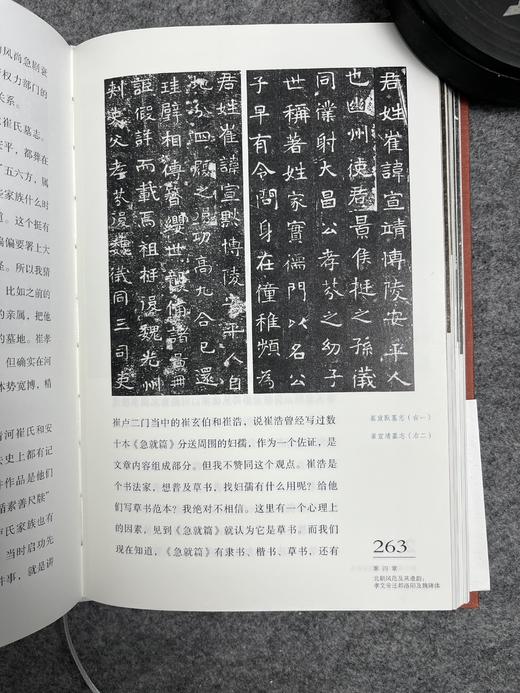 风尚急剧衰
权力部门的
关系。
崔氏墓志。
安平，都葬在
“五六方，属
些家族什么时
道。这个挺有
偏偏要署上大
怪。所以我猜
比如之前的
的亲属，把他
的墓地。崔孝
但确实在河
体势宽博，精
河崔氏和安
去史上都有记
作品是他们
循素善尺牍”
卢氏家族也有
当时启功先
件事，就是讲
君姓崔諱宣靖博陵安平人
也幽州使君景儁挺之孫儀
同僕射大昌公孝芬之幼子
世稱著姓家實儒門以名公
子早有令問身在僮稚頻為
君姓崔諱宣默博陵安平人自
地分四履之功高九合已還
珪璧相傳簪纓世
詎假詳而載焉祖挺後魏光州
刺史父孝芬後魏儀同三司吏
崔宣默墓志
崔宣靖墓志
崔卢二门当中的崔玄伯和崔浩，说崔浩曾经写过数
十本《急就篇》分送周围的妇孺，作为一个佐证，是
文章内容组成部分。但我不赞同这个观点。崔浩是
个书法家，想普及草书，找妇孺有什么用呢？给他
们写草书范本？我绝对不相信。这里有一个心理上
的因素，见到《急就篇》就认为它是草书。而我们
现在知道，《急就篇》有隶书、楷书、草书，还有
263
第四章
北朝风范及其遗韵：
孝文帝迁都洛阳及魏碑体